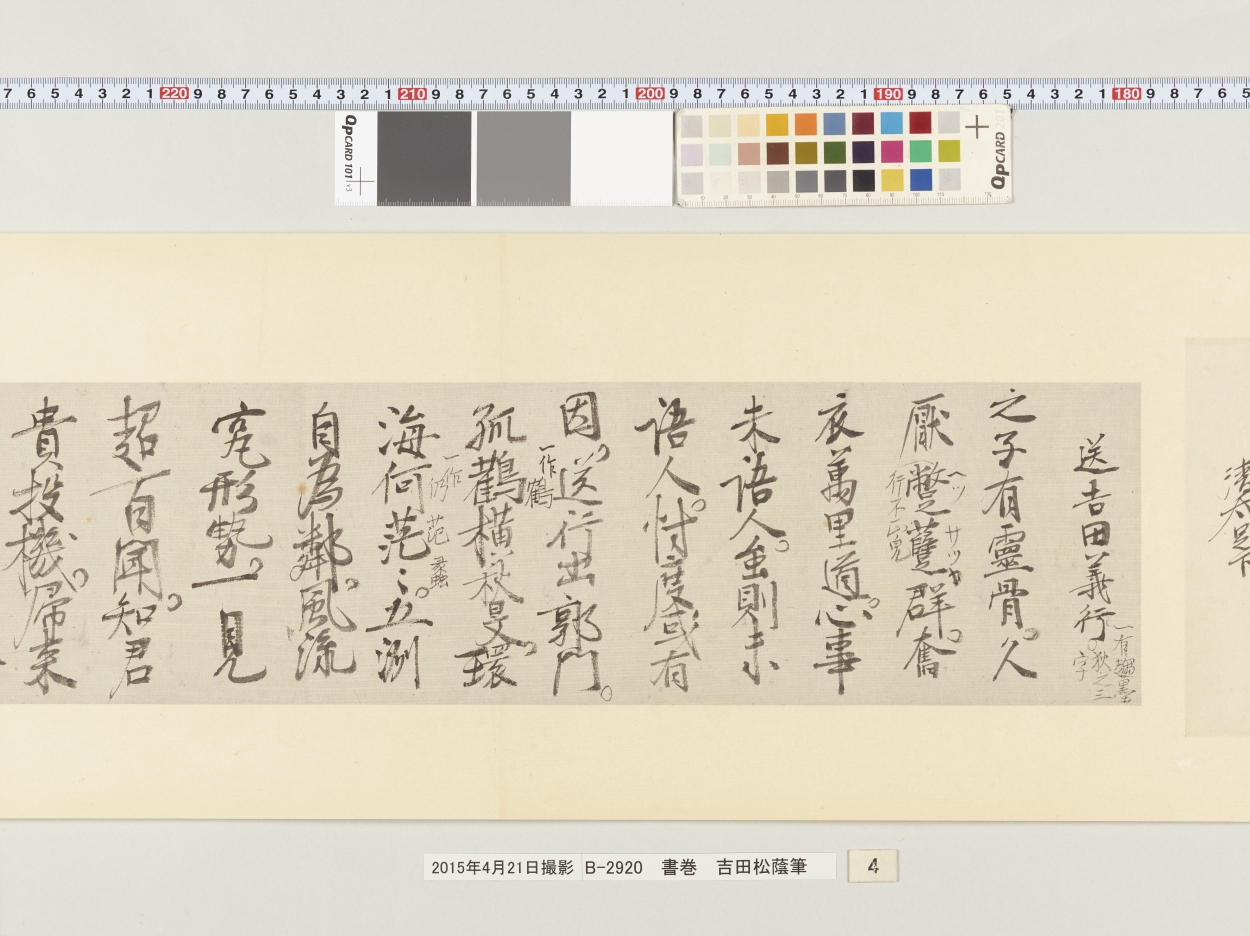 7 6 5 4 3 2 1 220 9 8 7 6 5 4 3 2 1 210 9 8 7 6 5 4 3 2 1 200 9 8 7 6 5 4 3 2 1 190 9 8 7 6 5 4 3 2 1 180 9 8 7 6 5
QPCARD 101 v3
QPCARD 201
足下
送吉田義行。
一有
字
之子有靈骨。久
厭蹩躠群。奮
ヘツサツ
行不正皃
衣萬里道。心事
未語人。雖則未
語人。忖度或有
因。送行出郭門。
一作鶴
孤鸛橫秋旻。環
海何茫々。五洲
一作
自為鄰。風流
究形勢。一見
超百聞。知君
貴投機。歸来
2015年4月21日撮影 B-2920 書巻 吉田松蔭筆
4